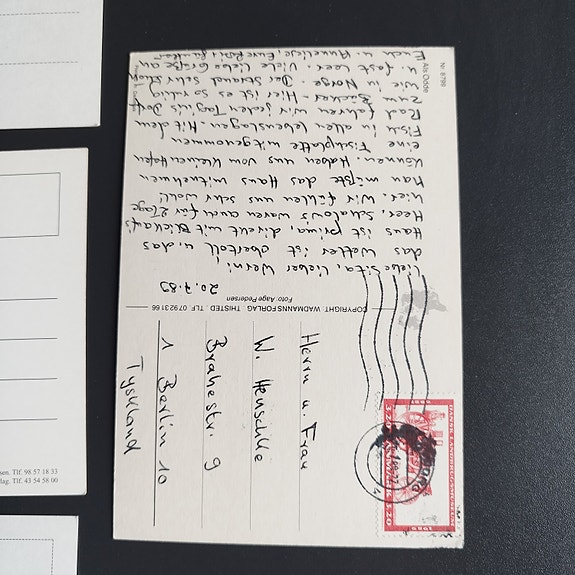 Nr. 8799
Als Odde
20.7.89
Liebe Sita, lieber Werni
das Wetter ist obertoll u. das
Haus ist prima, direkt mit Blick aufs
Meer. Schalow's waren auch für 2 Tage
hier. Wir fühlen uns sehr wohl!
Man müßte das Haus mitnehmen
können. Haben uns vom kleinen Hafen
eine Fischplatte mitgenommen
Fisch in allen Lebenslagen. Mit dem
Rad fahren wir jeden Tag ins Dorf
zum Bäcker. Hier ist es so ruhig
wie in Norge. Der Strand sehr schön
u. fast leer. Viele liebe Grüße an
Euch u. Anneliese, Eure
COPYRIGHT WADMANNS FORLAG THISTED. TLF. 07 92 31 66
Foto: Aage Pedersen
Herrn u. Frau
W. Henschke
Brahestr. 9
1 Berlin 10
Tyskland
DANSK LANDBRUGSMUSEUM
1889 1989
3.20 DANMARK 3.20
sen. Tlf. 98 57 18 33
lag. Tlf. 43 54 58 00